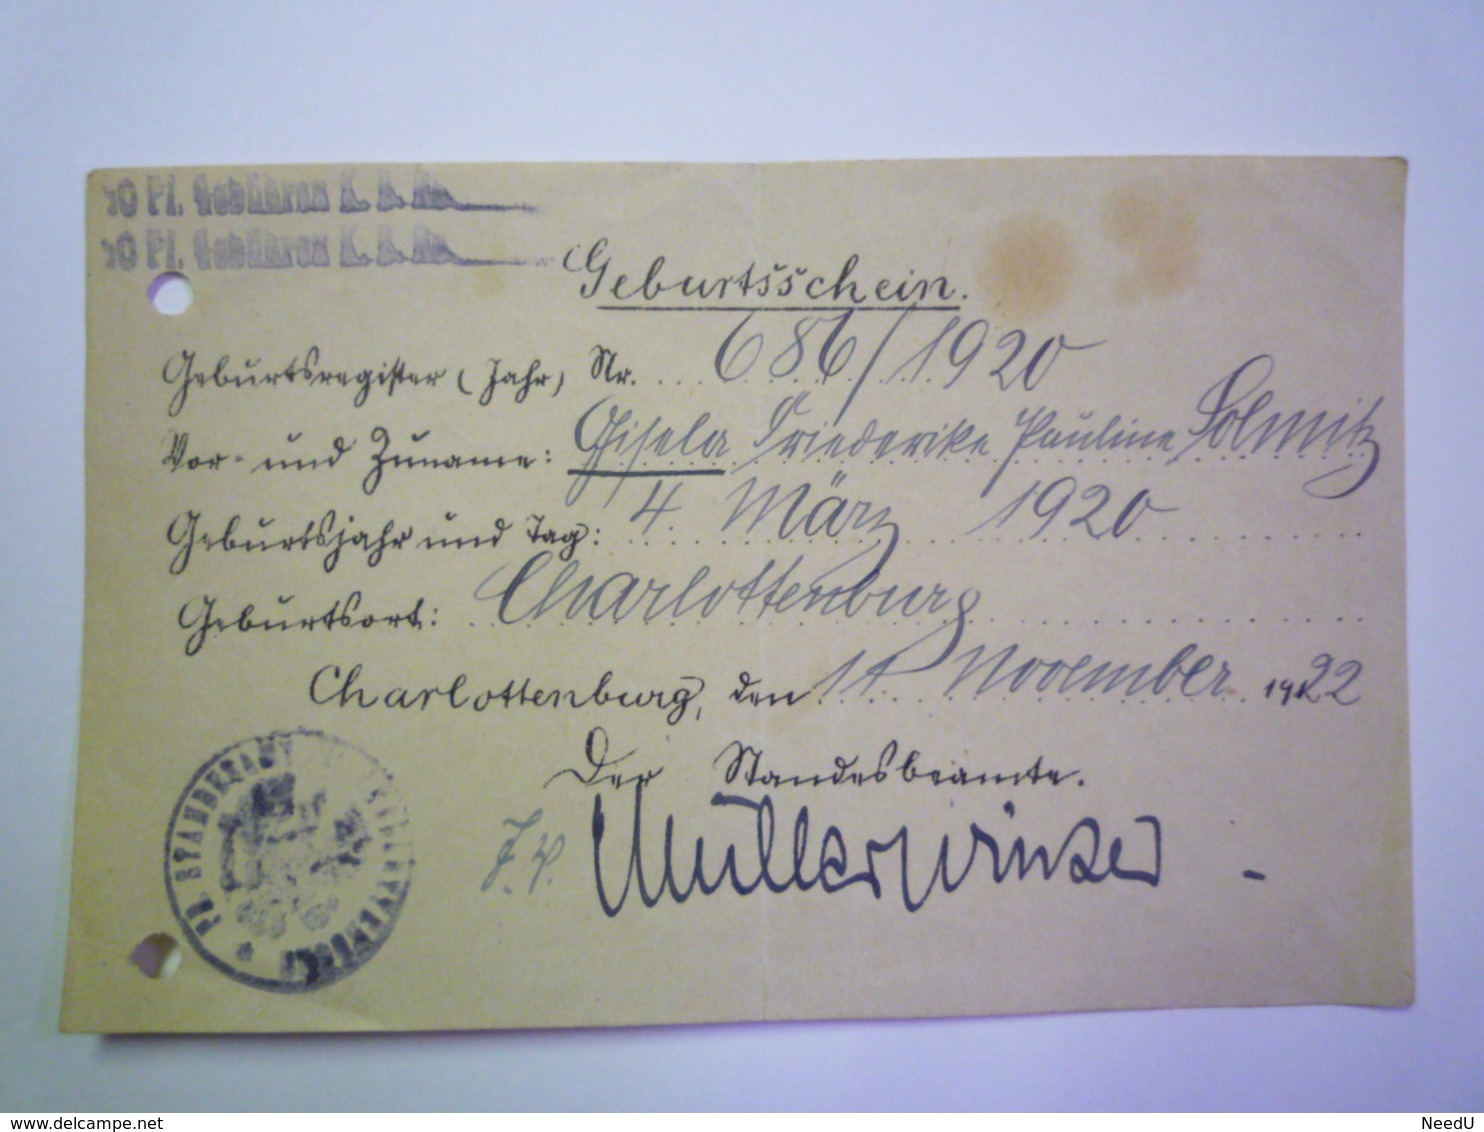 50 Pf. Gebühren K. B. No
50 Pf. Gebühren K. B. No
Geburtsschein.
Geburtsregister (Jahr) Nr. 686/1920
Vor- und Zuname: Gisela Friederike Pauline Solmitz
Geburtsjahr und Tag: 4. März 1920
Geburtsort: Charlottenburg
Charlottenburg, den 11. November 1922
Der Standesbeamte.
J. V. Müller
PR. STANDESAMT
delcampe.net
NeedU